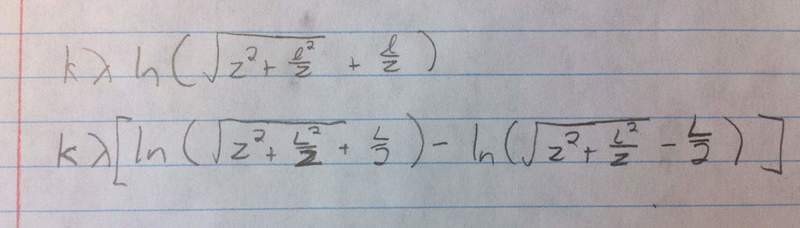 kλ ln(√(z² + ℓ²/2) + ℓ/2)
kλ[ln(√(z² + L²/2) + L/2) - ln(√(z² + L²/2) - L/2)]